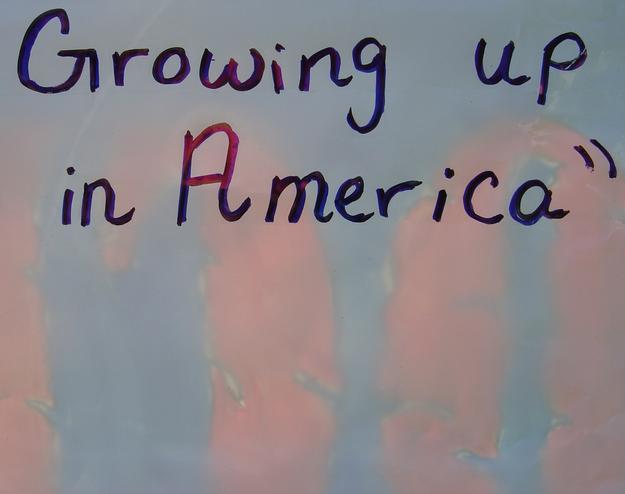 Growing up
in America"